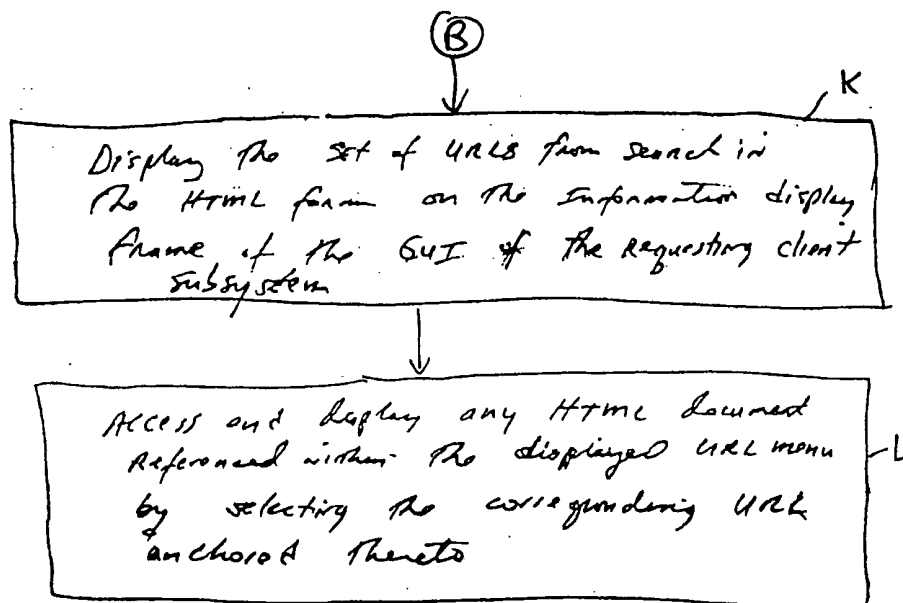 B
K
Display the set of URLs from search in
the HTML form on the Information display
frame of the GUI of the requesting client
subsystem
Access and display any HTML document
Referenced within the displayed URL menu
by selecting the corresponding URL
anchored thereto
L